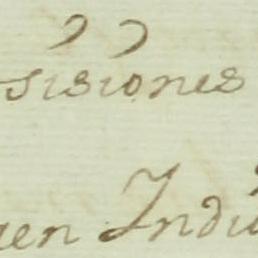 sisiones
en Indi